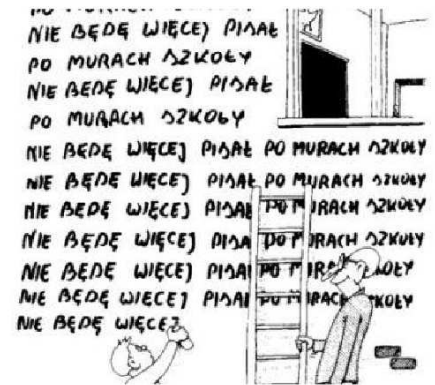 PO MURACH SZKOŁY
NIE BĘDĘ WIĘCEJ PISAŁ
PO MURACH SZKOŁY
NIE BĘDĘ WIĘCEJ PISAŁ
PO MURACH SZKOŁY
NIE BĘDĘ WIĘCEJ PISAŁ PO MURACH SZKOŁY
NIE BĘDĘ WIĘCEJ PISAŁ PO MURACH SZKOŁY
NIE BĘDĘ WIĘCEJ PISAŁ PO MURACH SZKOŁY
NIE BĘDĘ WIĘCEJ PISAŁ PO MURACH SZKOŁY
NIE BĘDĘ WIĘCEJ PISAŁ PO MURACH SZKOŁY
NIE BĘDĘ WIĘCEJ PISAŁ PO MURACH SZKOŁY
NIE BĘDĘ WIĘCEJ